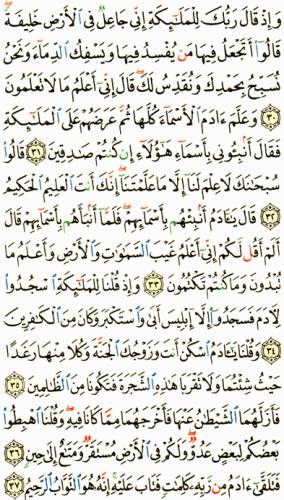 وَإِذْ قَالَ رَبُّكَ لِلْمَلَٰٓئِكَةِ إِنِّى جَاعِلٌ فِى ٱلْأَرْضِ خَلِيفَةً
قَالُوٓا۟ أَتَجْعَلُ فِيهَا مَن يُفْسِدُ فِيهَا وَيَسْفِكُ ٱلدِّمَآءَ وَنَحْنُ
نُسَبِّحُ بِحَمْدِكَ وَنُقَدِّسُ لَكَ ۖ قَالَ إِنِّىٓ أَعْلَمُ مَا لَا تَعْلَمُونَ
٣٠ وَعَلَّمَ ءَادَمَ ٱلْأَسْمَآءَ كُلَّهَا ثُمَّ عَرَضَهُمْ عَلَى ٱلْمَلَٰٓئِكَةِ
فَقَالَ أَنۢبِـُٔونِى بِأَسْمَآءِ هَٰٓؤُلَآءِ إِن كُنتُمْ صَٰدِقِينَ ٣١ قَالُوا۟
سُبْحَٰنَكَ لَا عِلْمَ لَنَآ إِلَّا مَا عَلَّمْتَنَآ ۖ إِنَّكَ أَنتَ ٱلْعَلِيمُ ٱلْحَكِيمُ
٣٢ قَالَ يَٰٓـَٔادَمُ أَنۢبِئْهُم بِأَسْمَآئِهِمْ ۖ فَلَمَّآ أَنۢبَأَهُم بِأَسْمَآئِهِمْ قَالَ
أَلَمْ أَقُل لَّكُمْ إِنِّىٓ أَعْلَمُ غَيْبَ ٱلسَّمَٰوَٰتِ وَٱلْأَرْضِ وَأَعْلَمُ مَا
تُبْدُونَ وَمَا كُنتُمْ تَكْتُمُونَ ٣٣ وَإِذْ قُلْنَا لِلْمَلَٰٓئِكَةِ ٱسْجُدُوا۟
لِـَٔادَمَ فَسَجَدُوٓا۟ إِلَّآ إِبْلِيسَ أَبَىٰ وَٱسْتَكْبَرَ وَكَانَ مِنَ ٱلْكَٰفِرِينَ
٣٤ وَقُلْنَا يَٰٓـَٔادَمُ ٱسْكُنْ أَنتَ وَزَوْجُكَ ٱلْجَنَّةَ وَكُلَا مِنْهَا رَغَدًا
حَيْثُ شِئْتُمَا وَلَا تَقْرَبَا هَٰذِهِ ٱلشَّجَرَةَ فَتَكُونَا مِنَ ٱلظَّٰلِمِينَ ٣٥
فَأَزَلَّهُمَا ٱلشَّيْطَٰنُ عَنْهَا فَأَخْرَجَهُمَا مِمَّا كَانَا فِيهِ ۖ وَقُلْنَا ٱهْبِطُوا۟
بَعْضُكُمْ لِبَعْضٍ عَدُوٌّ ۖ وَلَكُمْ فِى ٱلْأَرْضِ مُسْتَقَرٌّ وَمَتَٰعٌ إِلَىٰ حِينٍ ٣٦
فَتَلَقَّىٰٓ ءَادَمُ مِن رَّبِّهِۦ كَلِمَٰتٍ فَتَابَ عَلَيْهِ ۚ إِنَّهُۥ هُوَ ٱلتَّوَّابُ ٱلرَّحِيمُ ٣٧